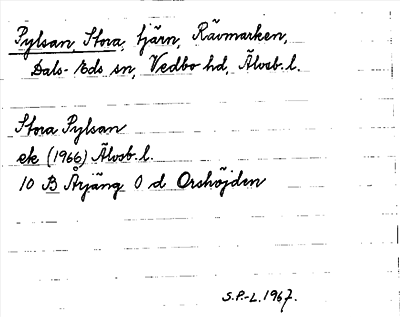 Pylsan, Stora, tjärn, Rävmarken,
Dals-Eds sn, Vedbo hd, Älvsb.l.
Stora Pylsan
ek (1966) Älvsb.l.
10 B Årjäng 0 d Orshöjden
S.P.-L.1967.